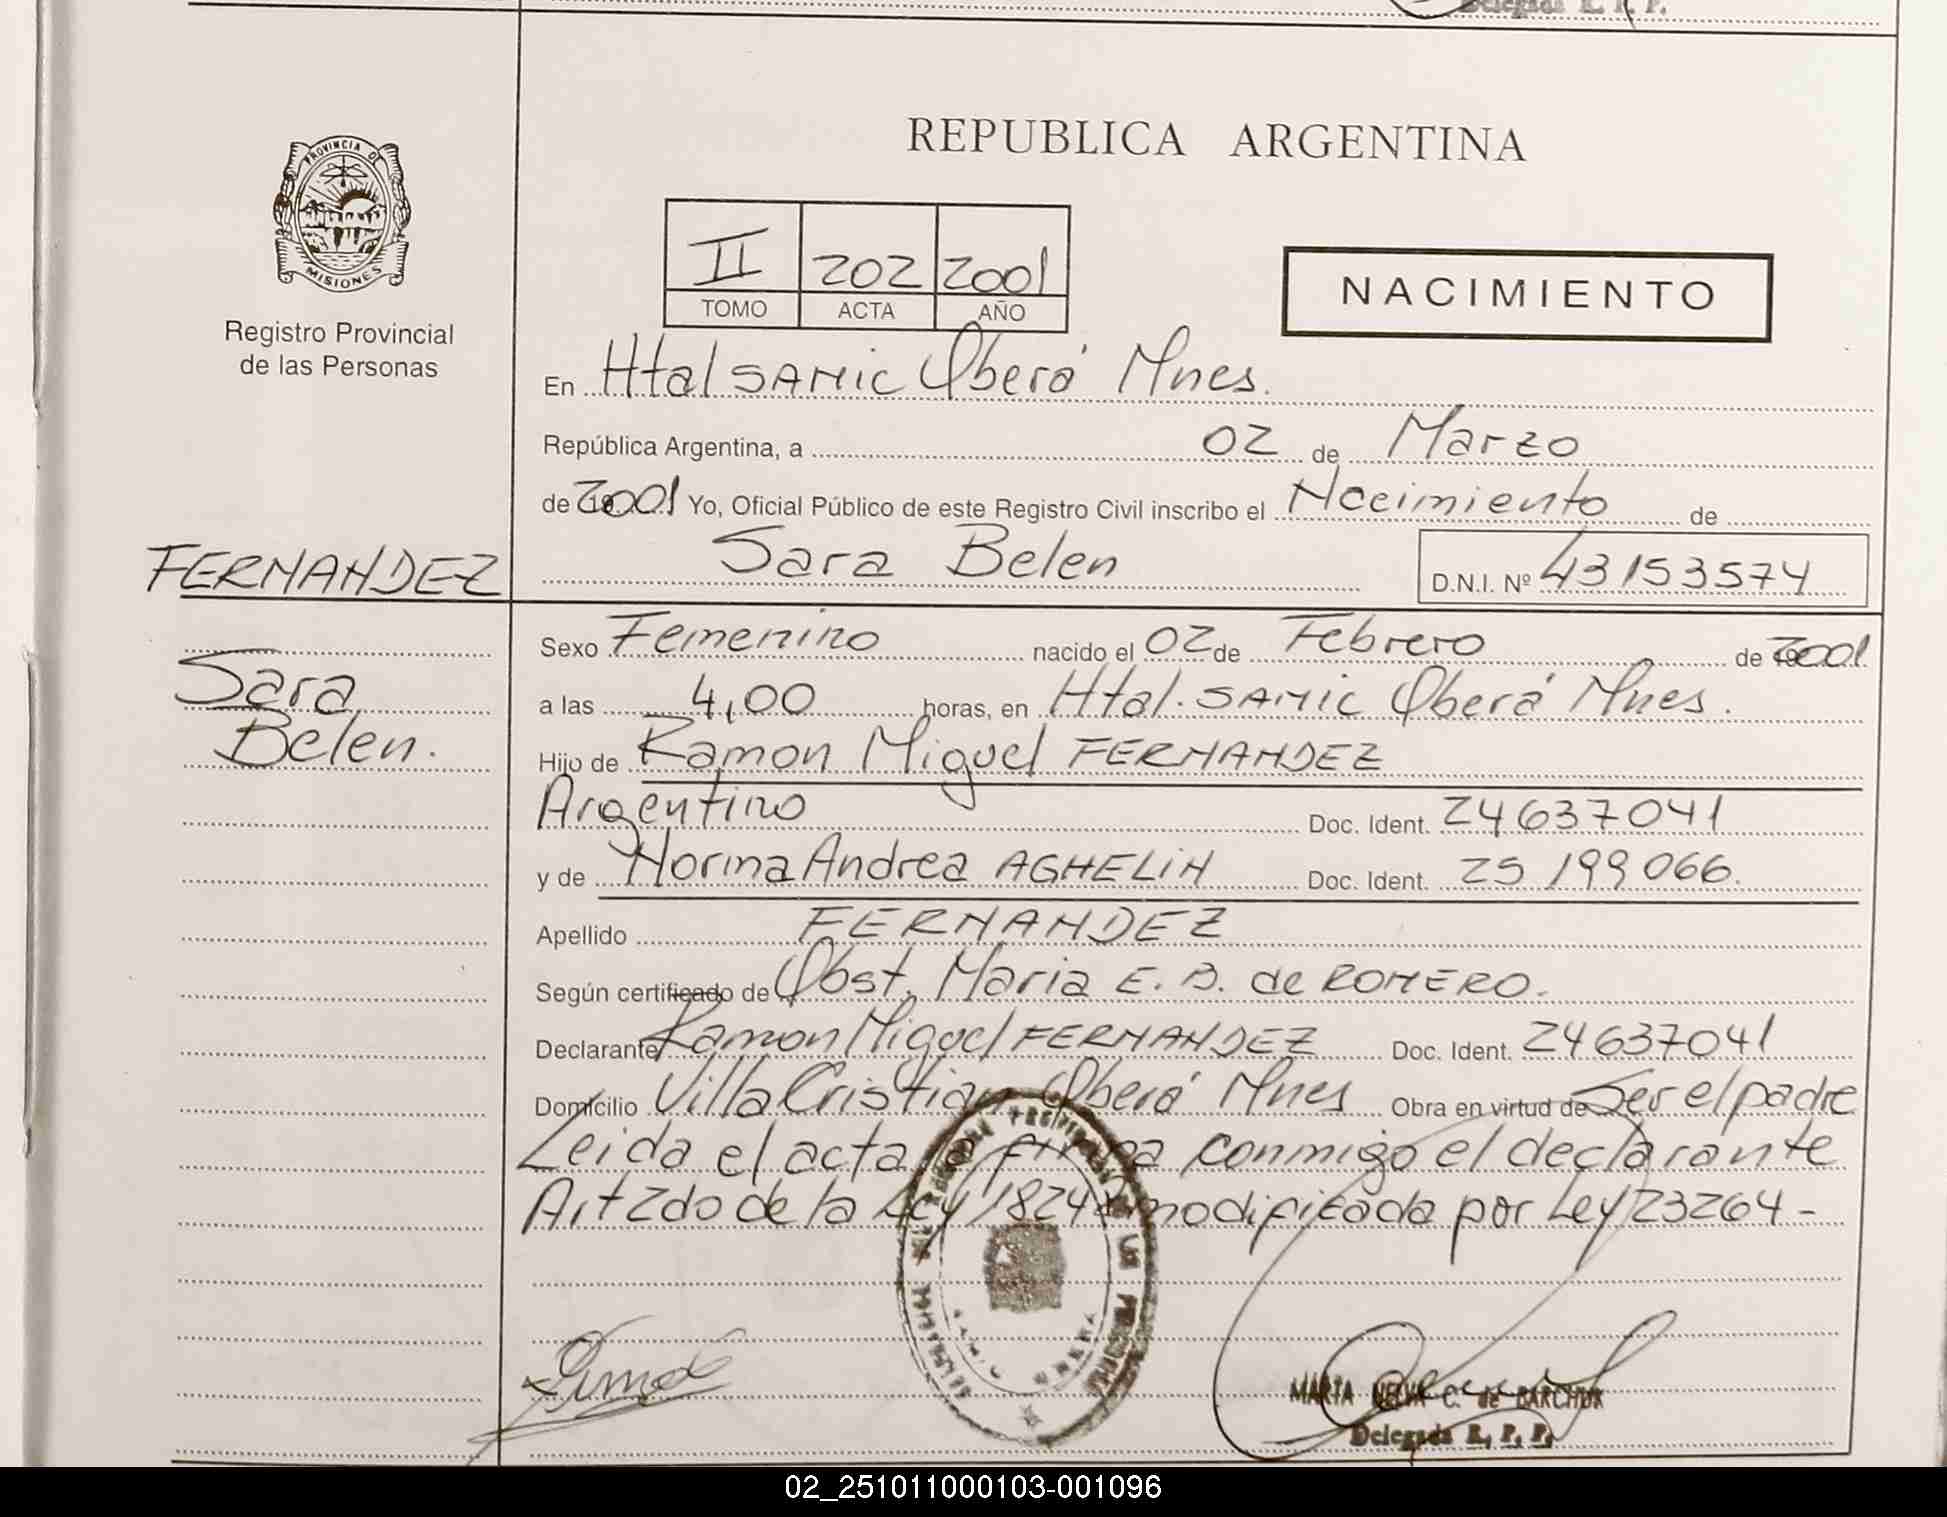 Delegada R. P. P.
REPUBLICA ARGENTINA
PROVINCIA DE
MISIONES
Registro Provincial
de las Personas
II 202 2001
TOMO ACTA AÑO
NACIMIENTO
En Htal SAMIC Oberá Mnes.
República Argentina, a 02 de Marzo
de 2001 Yo, Oficial Público de este Registro Civil inscribo el Nacimiento de
FERNANDEZ
Sara Belen D.N.I. Nº 43153574
Sara
Belen.
Sexo Femenino nacido el 02 de Febrero de 2001
a las 4,00 horas, en Htal. SAMIC Oberá Mnes.
Hijo de Ramon Miguel FERNANDEZ
Argentino Doc. Ident. 24637041
y de Norma Andrea AGHELIN Doc. Ident. 25 199 066.
Apellido FERNANDEZ
Según certificado de Obst. Maria E. B. de ROMERO.
Declarante Ramon Miguel FERNANDEZ Doc. Ident. 24637041
Domicilio Villa Cristian Oberá Mnes Obra en virtud de Ser el padre
Leida el acta la firma conmigo el declarante
Art 2do de la Ley 18248 modificada por Ley 23264 -
MARIA NELVA C. de BARCHUK
Delegada R. P. P.
02_251011000103-001096